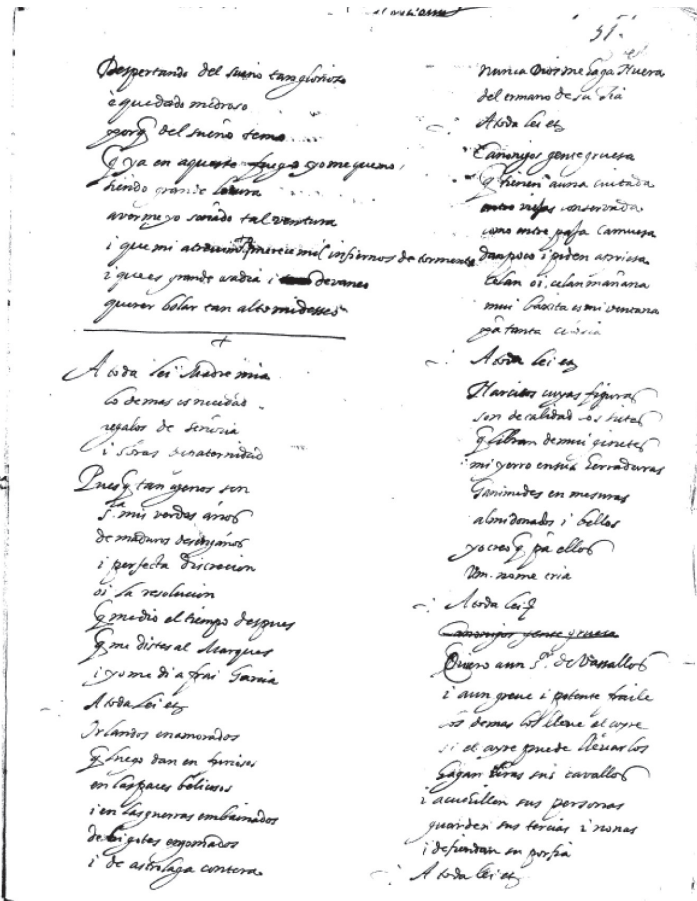 51.
Despertando del sueño tan glorioso
è quedado medroso
porq̃ del sueño temo
q̃ ya en aqueste fuego yo me quemo,
siendo grande locura
aver me yo soñado tal ventura
i que mi merecio mil infiernos de tormento
i que es grande i devaneo
querer bolar tan alto mi desseo
A toda lei Madre mia
lo demas es necedad
regalos de señoria
i obras de paternidad
Pues q̃ tan agenos son
s.ra mis verdes años
de maduros desengaños
i perfecta discrecion
oi la resolucion
q̃ medio el tiempo despues
q̃ me distes al Marques
i yo me di a frai Garcia
A toda lei etz
Orlandos enamorados
q̃ luego dan en furiosos
en las paces belicosos
i en las guerras embainados
de bigotes engomados
i de astrolaga contera
nunca Dios me haga Nuera
del ermano de su tia
A toda lei etz
Canonigos gente gruesa
q̃ tienen a una cuitada
entre viejas conservada
como entre paja camuesa
dan poco i piden apriesa
celan oi, celan mañana
mui baxita es mi ventana
pa tanta
A toda lei etz
Narcisos cuyas figuras
son de calidad
q̃ libran de mui ginetes
mi yerro en sus herraduras
Ganimedes en mesuras
almidonados i bellos
yo creo q̃ pa ellos
Vm. no me cria
A toda lei q̃
Canonigos gente gruesa
Quiero a un s.r de Vassallos
i a un grave i potente fraile
los demas los lleve el ayre
si el ayre puede llevarlos
hagan tiras sus cavallos
i acuchillen sus personas
guarden sus tercias i nonas
i defiendan su porfia
A toda lei etz